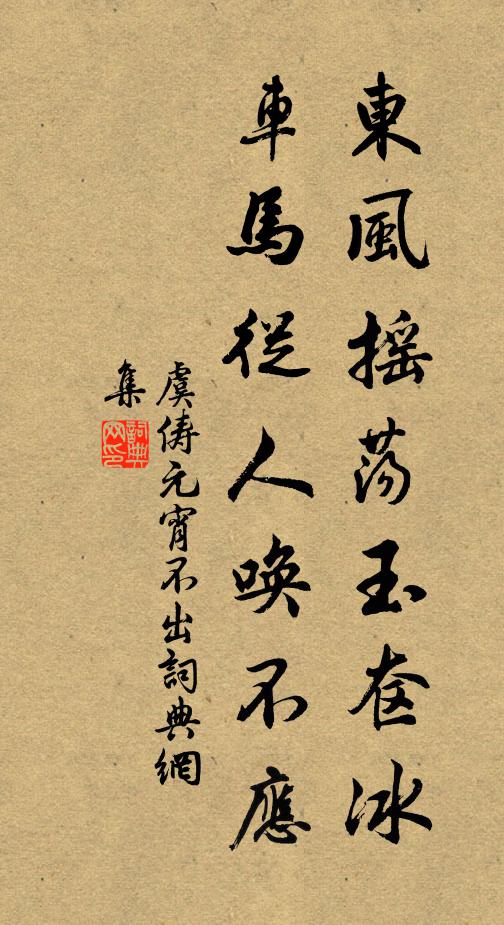 東風搖蕩玉奩冰
車馬從人喚不應
虞儔元宵不出詞典網
集
詞典网印